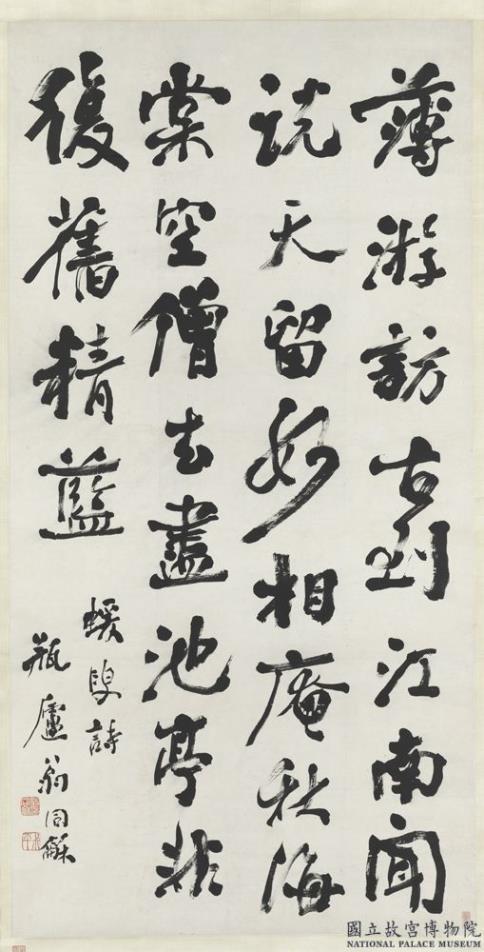 薄游訪古到江南聞
說天留妙相庵秋海
棠空僧去盡池亭非
復舊精藍
蝯叟詩
瓶廬翁同龢
國立故宮博物院
NATIONAL PALACE MUSEUM